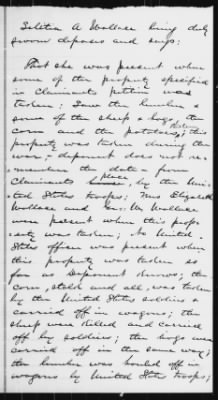 Letitia A Wallace being duly
sworn deposes and says:
That she was present when
some of the property specified
in claimants petition was
taken: Saw the lumber &
some of the sheep & hogs, the
corn and the potatoes; this
property was taken during the
war, - deponent does not re-
member the date - from
Claimants place, by the Uni-
ted States troops; Mrs Elizabeth
Wallace and Wallace
were present when this prop-
erty was taken; No United
States officer was present when
this property was taken so
far as deponent knows; the
corn, stalk and all, was taken
by the United States soldiers &
carried off in wagons; the
sheep were killed and carried
off by soldiers; the hogs were
carried off in the same way;
the lumber was hauled off in
wagons by United States troops;